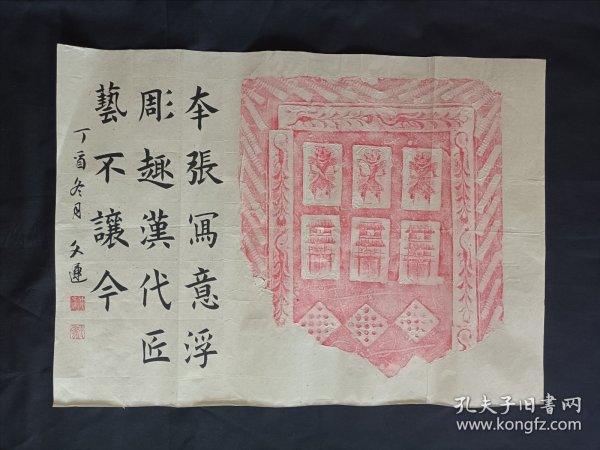 夸張冩意浮
彫趣漢代匠
藝不讓今
丁酉冬月 文
孔夫子旧書网
www.kongfz.com